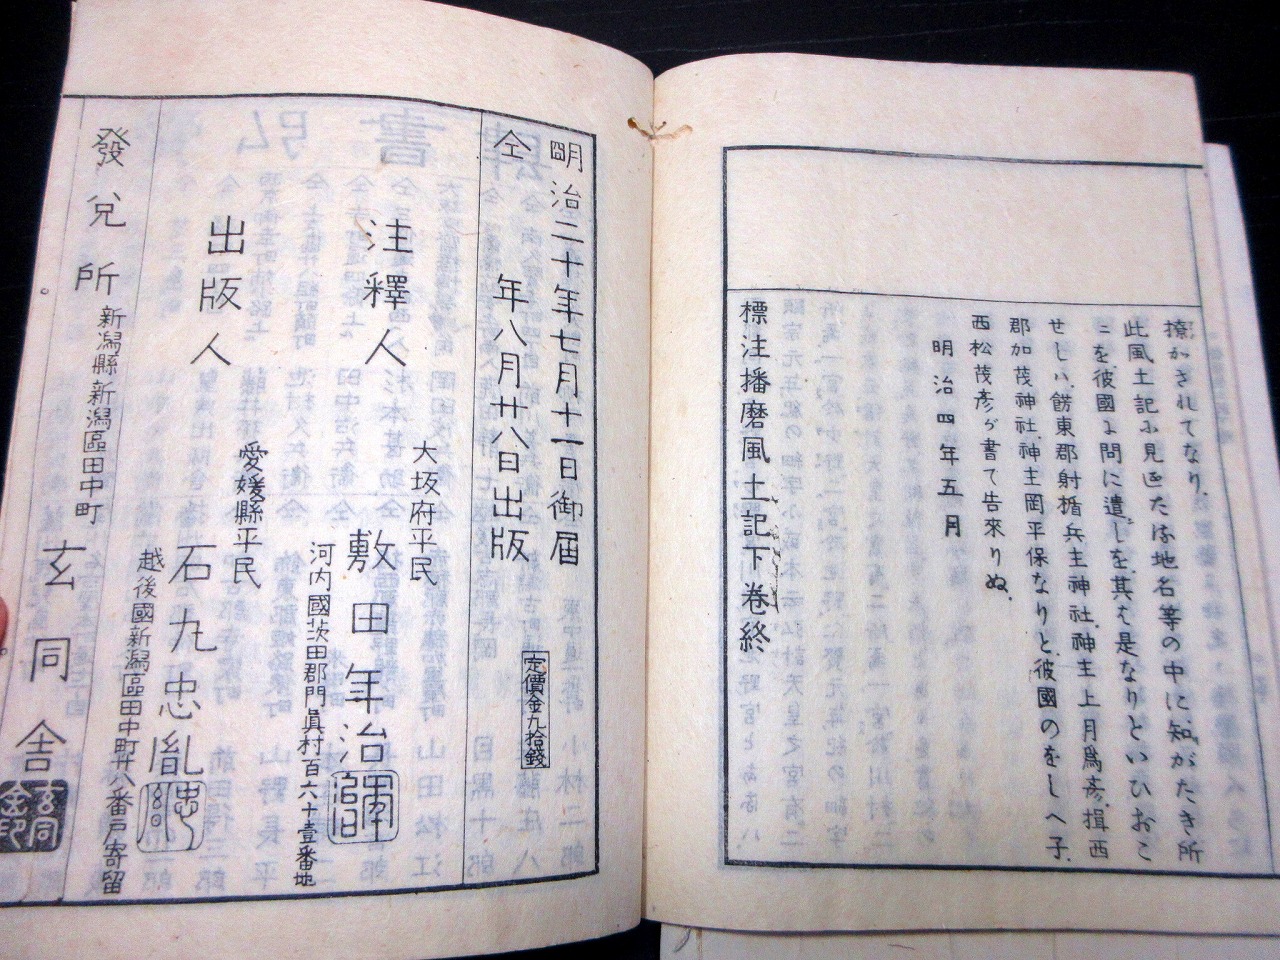 撩かされてなり
此風土記に見
たる地名等の中に知がたき所
こを彼國に問に遣しを其は是なりといひおこ
せしハ餝東郡射楯兵主神社神主上月爲彦揖西
郡加茂神社神主岡平保なりと彼國のをしへ子
西松茂彦が書て告來りぬ
明治四年五月
標注播磨風土記下卷終
明治二十年七月十一日御届
仝 年八月廿八日出版
定價金九拾錢
注釋人
大坂府平民
敷田年治
河内國茨田郡門眞村百六十壹番地
出版人
愛媛縣平民
石丸忠胤
越後國新潟區田中町廿八番戸寄留
發兌所
新潟縣新潟區田中町
玄同舎